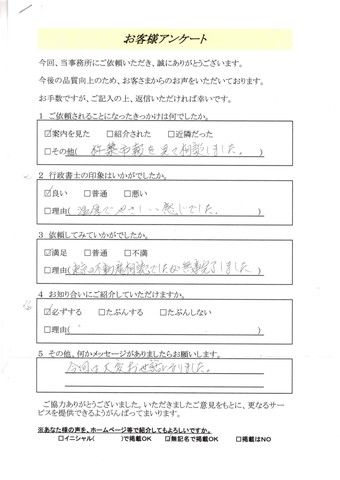 お客様アンケート
今回、当事務所にご依頼いただき、誠にありがとうございます。
今後の品質向上のため、お客さまからのお声をいただいております。
お手数ですが、ご記入の上、返信いただければ幸いです。
1 ご依頼されることになったきっかけは何でしたか。
☑案内を見た □紹介された □近隣だった
□その他( を見て相談しました。 )
2 行政書士の印象はいかがでしたか。
☑良い □普通 □悪い
□理由( 温厚でやさしい感じでした。 )
3 依頼してみていかがでしたか。
☑満足 □普通 □不満
□理由( 東京の不動産相談でしたが無事完了しました )
4 お知り合いにご紹介していただけますか。
☑必ずする □たぶんする □たぶんしない
□理由( )
5 その他、何かメッセージがありましたらお願いします。
今回は大変お世話になりました。
ご協力ありがとうございました。いただきましたご意見をもとに、更なるサー
ビスを提供できるようがんばってまいります。
※あなた様の声を、ホームページ等で紹介してもよろしいですか。
□イニシャル( )で掲載OK ☑無記名で掲載OK □掲載はNO